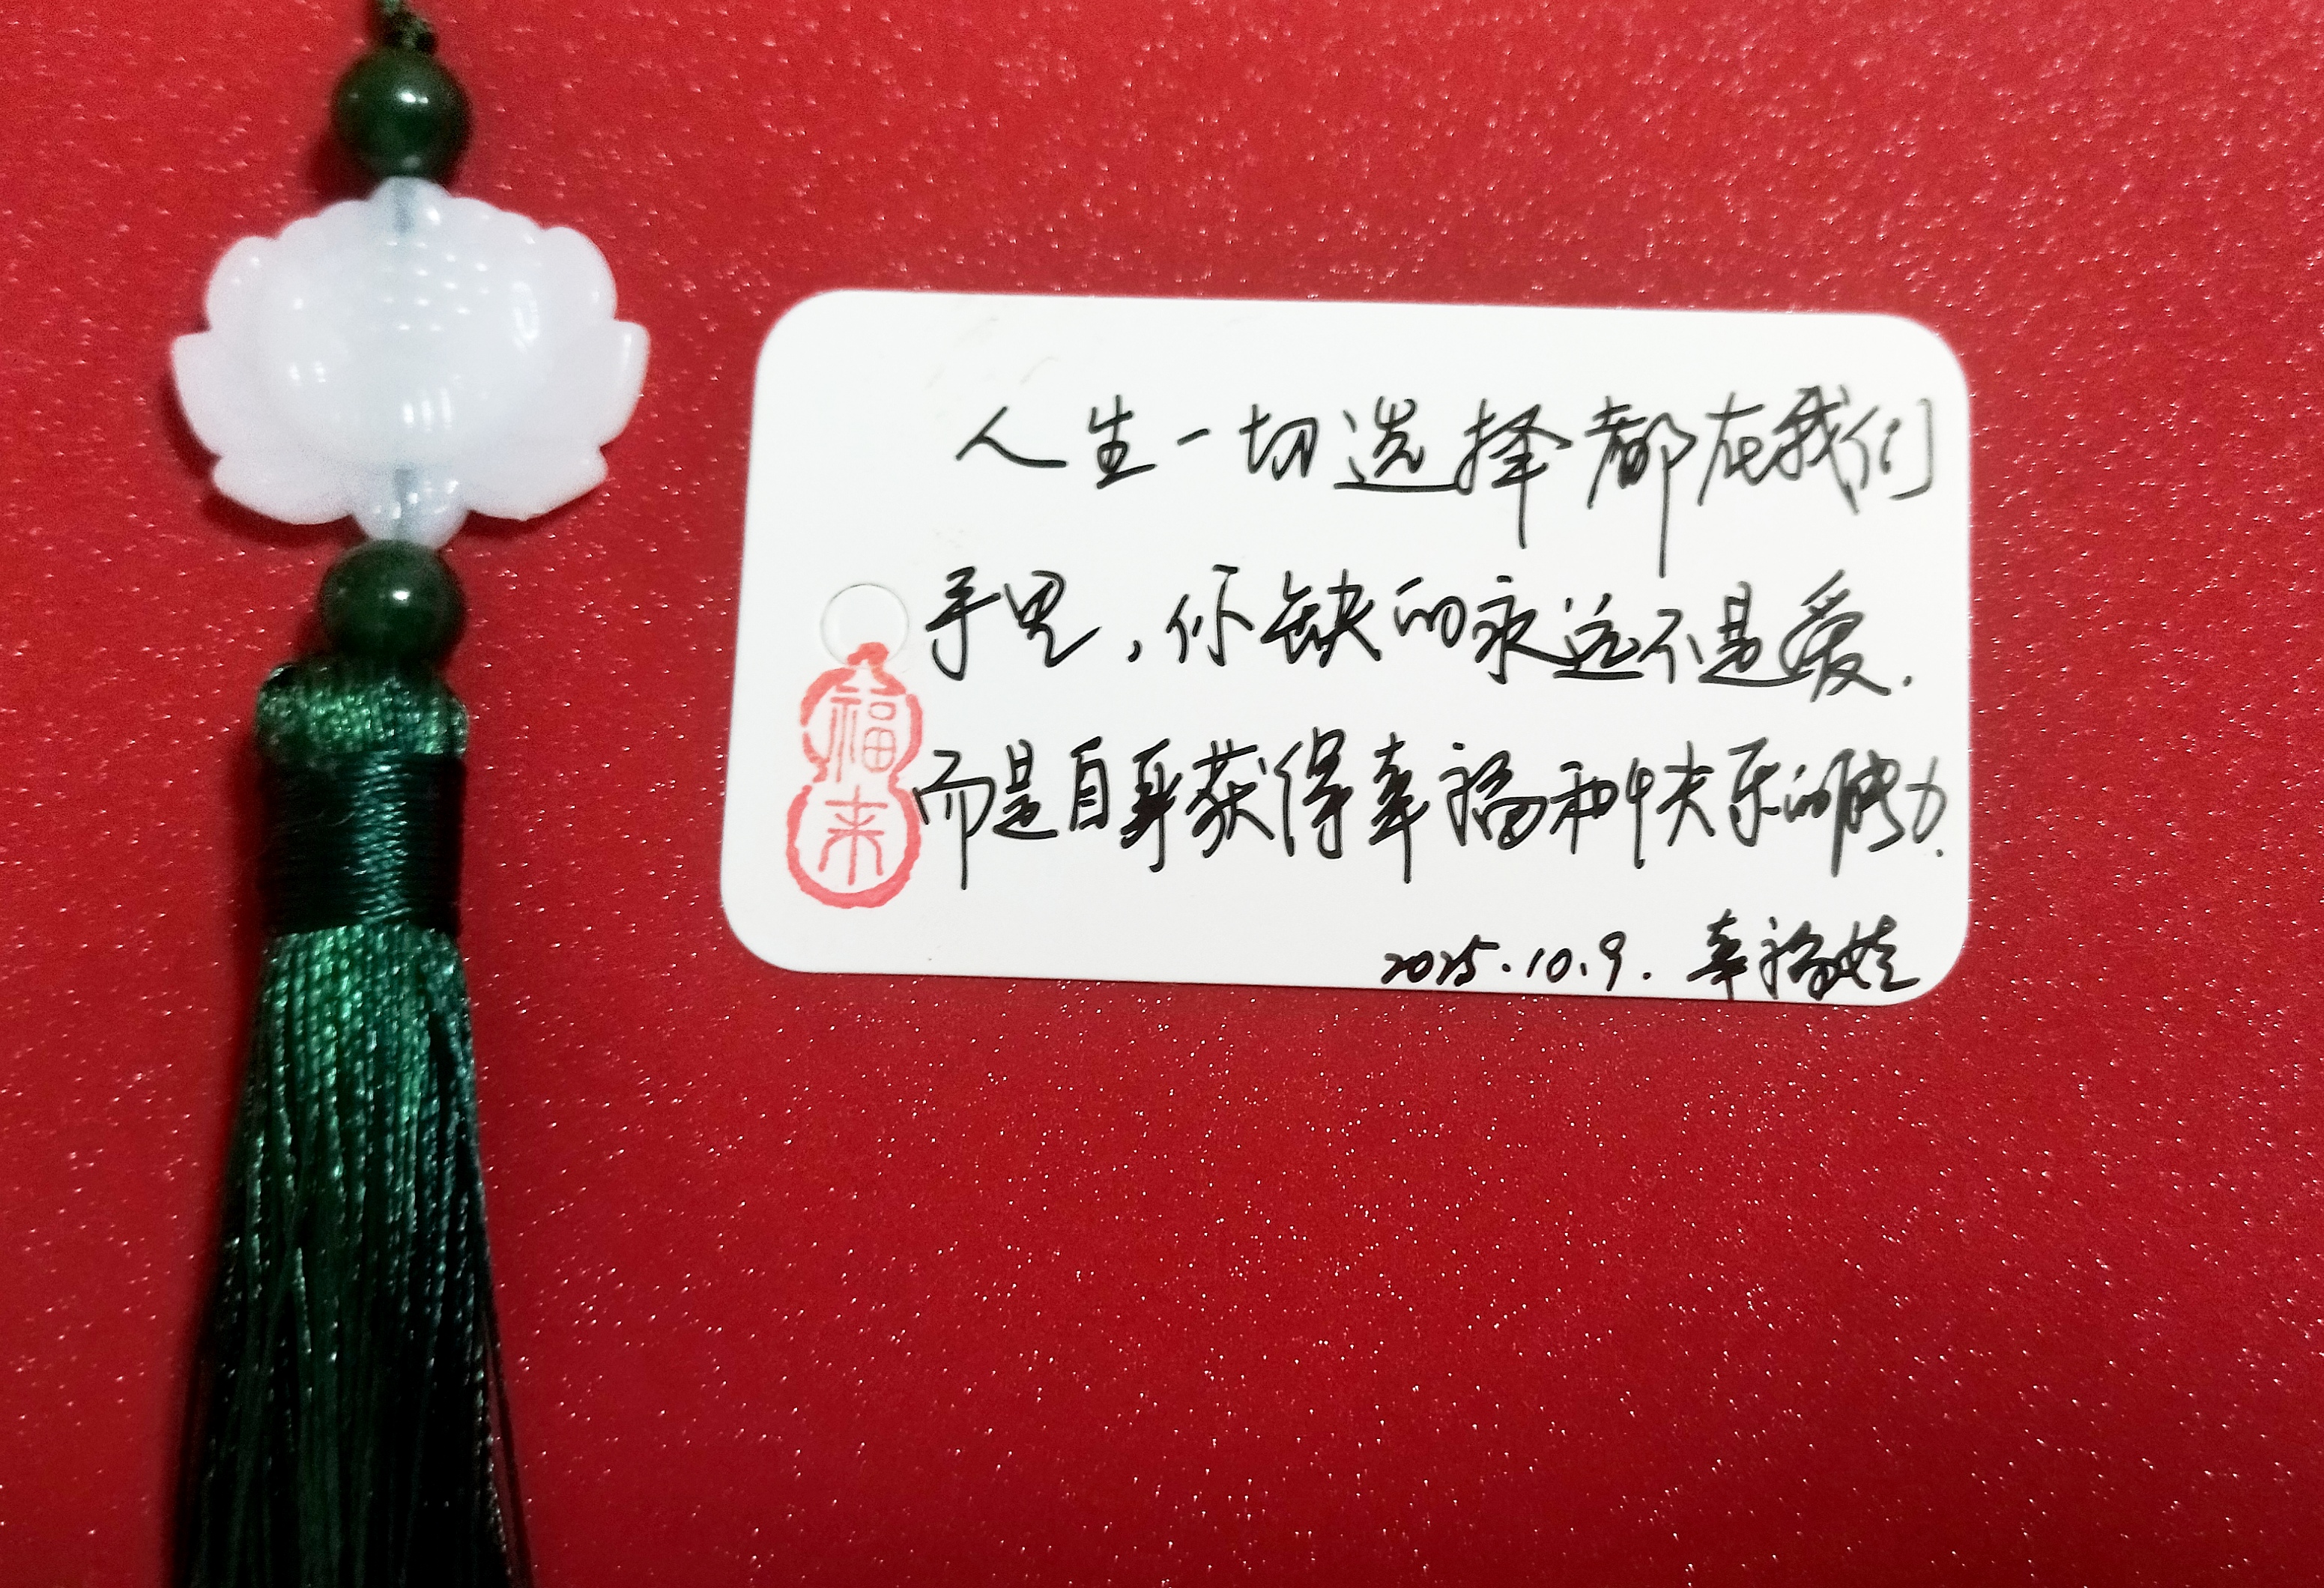 人生一切选择都在我们
手里，你缺的永远不是爱．
而是自身获得幸福和快乐的能力．
2025.10.9. 幸福娃
福来